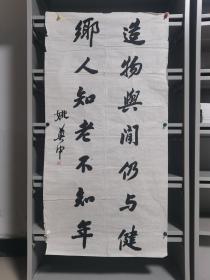 造物與閒仍与健
鄉人知老不知年
姚奠中